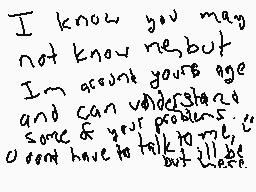 I know you may
not know me, but
Im around yours age
and can understand
some of your problems.
U dont have to talk to me,
but ill be
here.